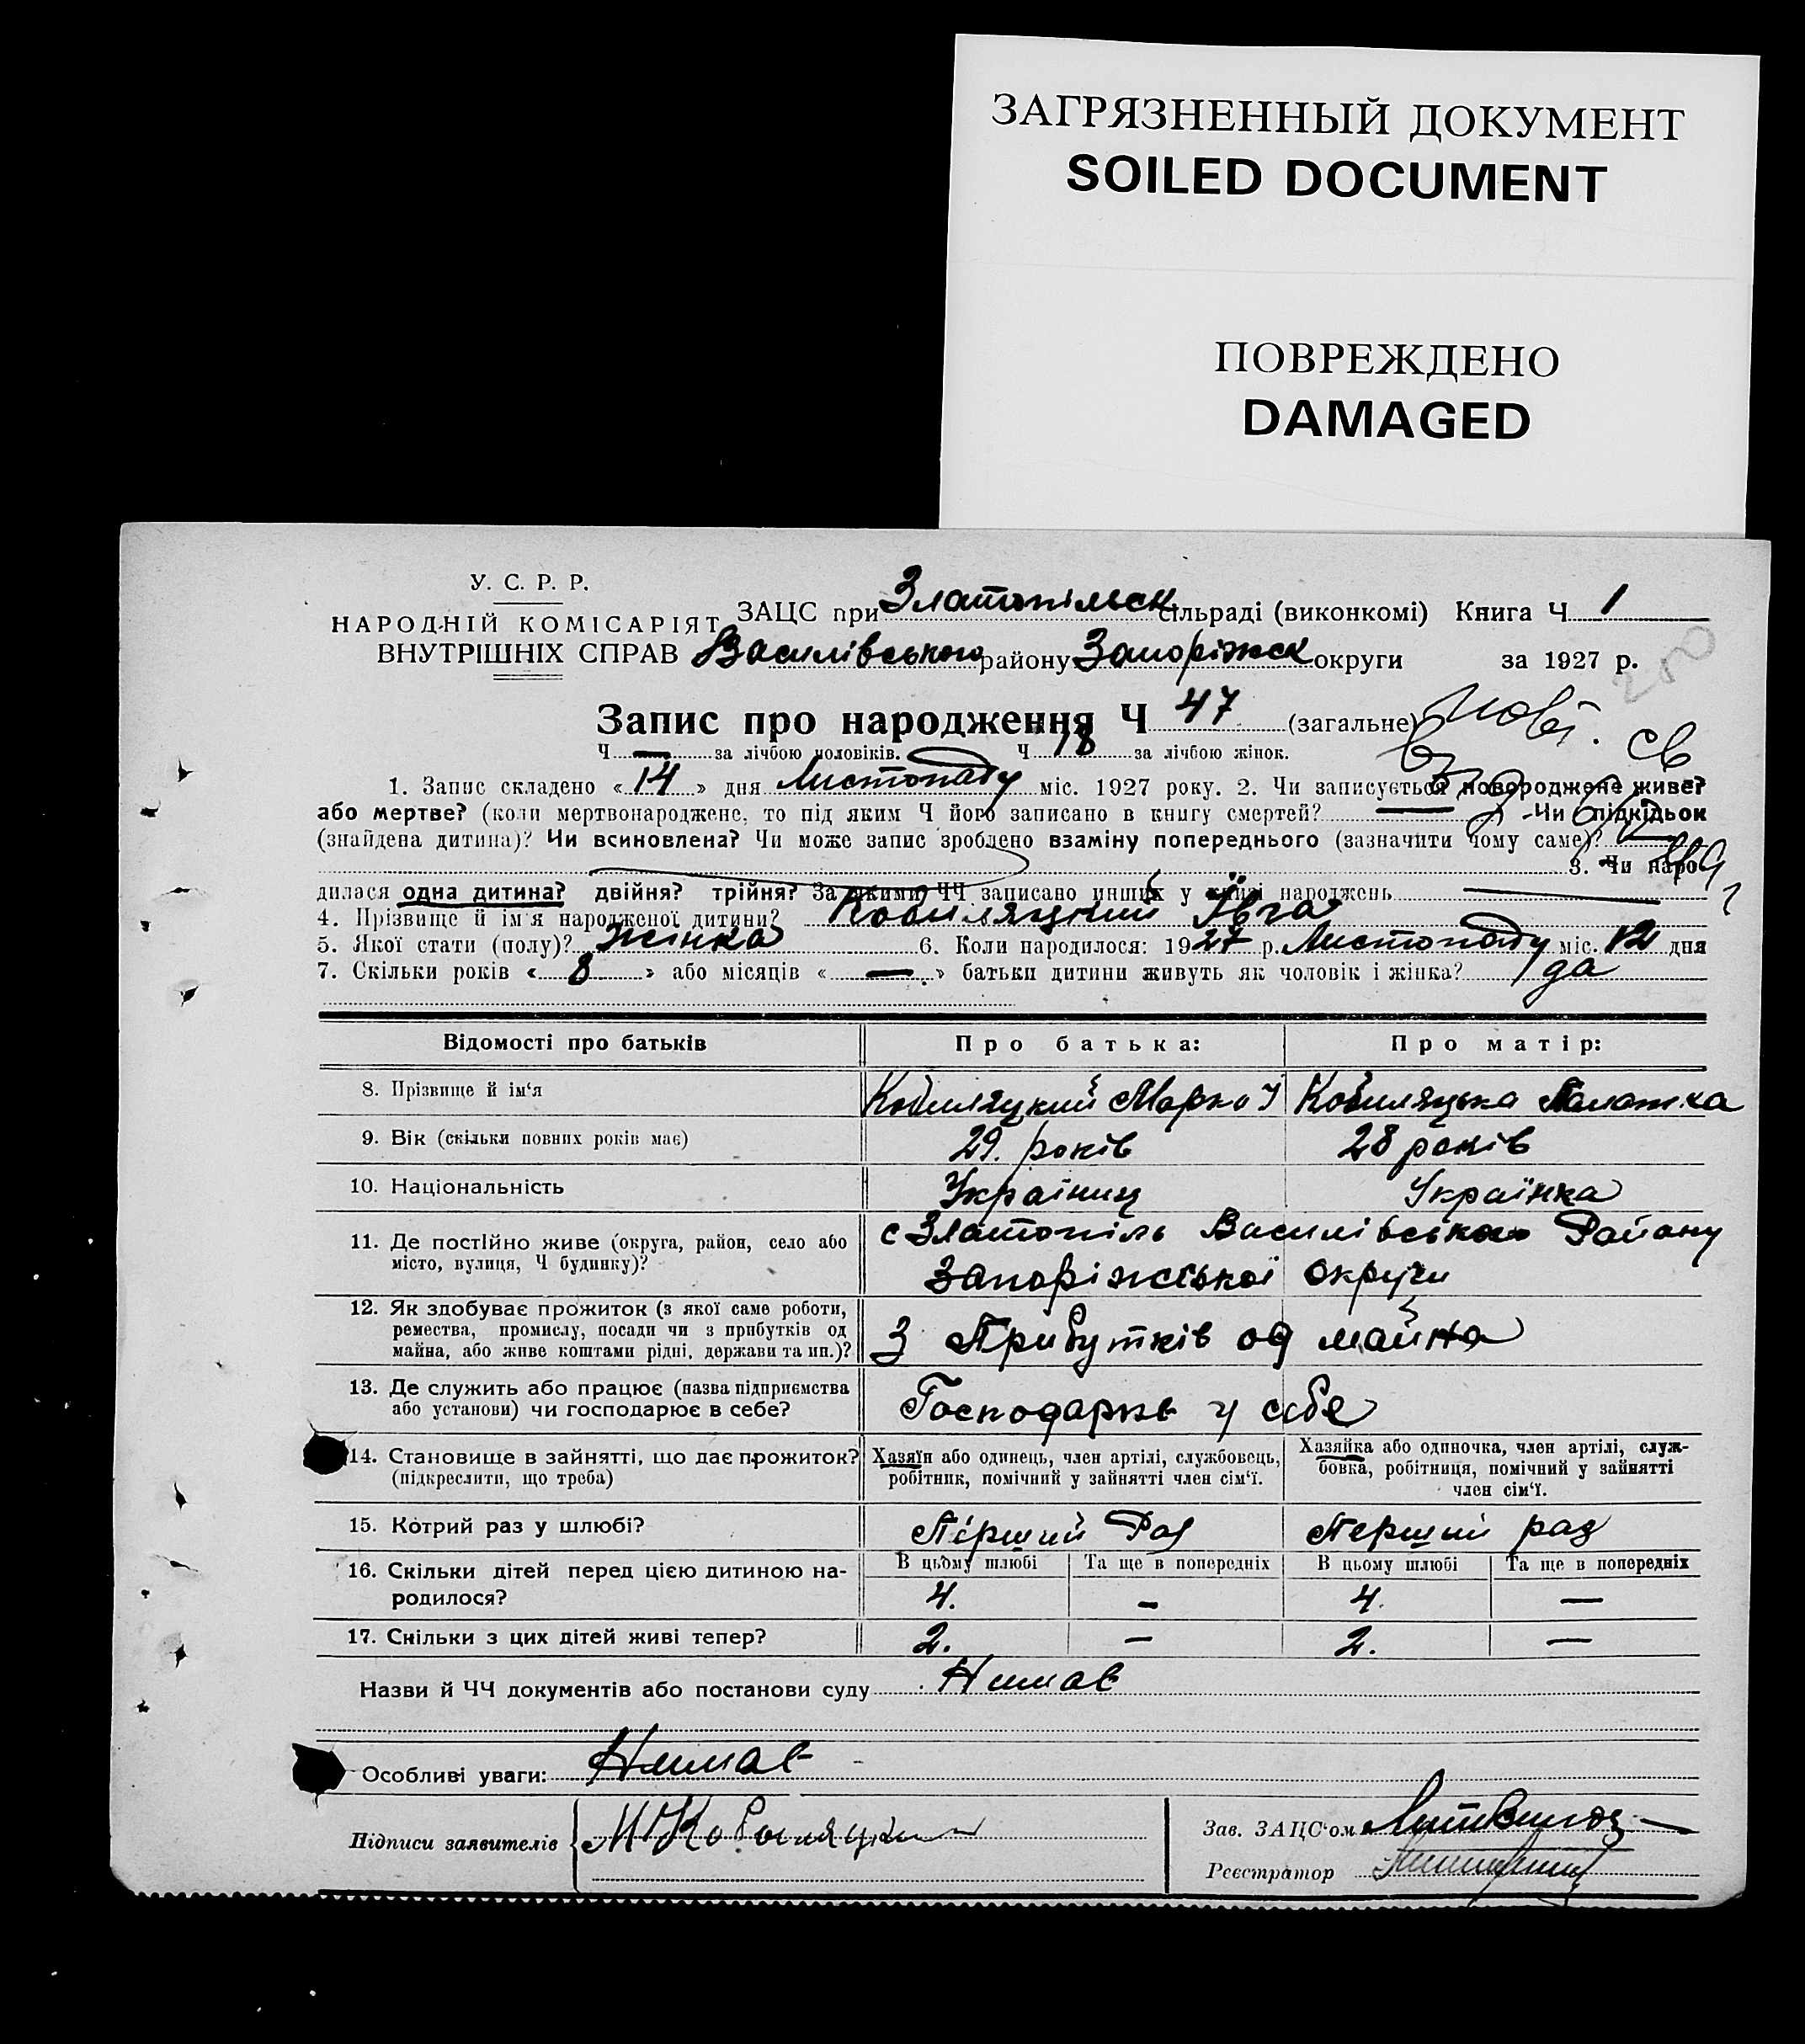 ЗАГРЯЗНЕННЫЙ ДОКУМЕНТ
SOILED DOCUMENT
ПОВРЕЖДЕНО
DAMAGED
У. С. Р. Р.
НАРОДНІЙ КОМІСАРІЯТ
ВНУТРІШНІХ СПРАВ
ЗАЦС при Златопільск сільраді (виконкомі) Книга Ч 1
Василівського району Запоріжск округи за 1927 р.
Запис про народження Ч 47 (загальне)
Ч — за лічбою чоловіків. Ч 18 за лічбою жінок.
1. Запис складено «14» дня Листопаду міс. 1927 року. 2. Чи записується новороджене живе?
або мертве? (коли мертвонароджене, то під яким Ч його записано в книгу смертей? — Чи підкідьок
(знайдена дитина)? Чи всиновлена? Чи може запис зроблено взаміну попереднього (зазначити чому саме)? —
3. Чи наро-
дилася одна дитина? двійня? трійня? За якими ЧЧ записано инших у книзі народжень —
4. Прізвище й ім'я народженої дитини? Кобиляцкий Івга
5. Якої стати (полу)? Жінка 6. Коли народилося: 1927 р. Листопаду міс. 12 дня
7. Скільки років «8» або місяців «—» батьки дитини живуть як чоловік і жінка? да
Відомості про батьків Про батька: Про матір:
8. Прізвище й ім'я Кобиляцкий Марко І Кобиляцька
9. Вік (скільки повних років має) 29. років 28 років
10. Національність Українец Українка
11. Де постійно живе (округа, район, село або с Златопіль Василівського Району
місто, вулиця, Ч будинку)? Запоріжської округи
12. Як здобуває прожиток (з якої саме роботи,
ремества, промислу, посади чи з прибутків од
майна, або живе коштами рідні, держави та ин.)? З Прибутків од майна
13. Де служить або працює (назва підприємства
або установи) чи господарює в себе? Господарює у себе
14. Становище в зайнятті, що дає прожиток?
(підкреслити, що треба)
Хазяїн або одинець, член артілі, службовець,
робітник, помічний у зайнятті член сім'ї.
Хазяйка або одиночка, член артілі, служ-
бовка, робітниця, помічний у зайнятті
член сім'ї.
15. Котрий раз у шлюбі? Пірший Раз Перший раз
16. Скільки дітей перед цією дитиною на-
родилося?
В цьому шлюбі Та ще в попередніх В цьому шлюбі Та ще в попередніх
4. — 4. —
17. Скільки з цих дітей живі тепер? 2. — 2. —
Назви й ЧЧ документів або постанови суду Нимає
Особливі уваги: Нимає
Підписи заявителів М Кобыляцкий
Зав. ЗАЦС'ом
Реєстратор